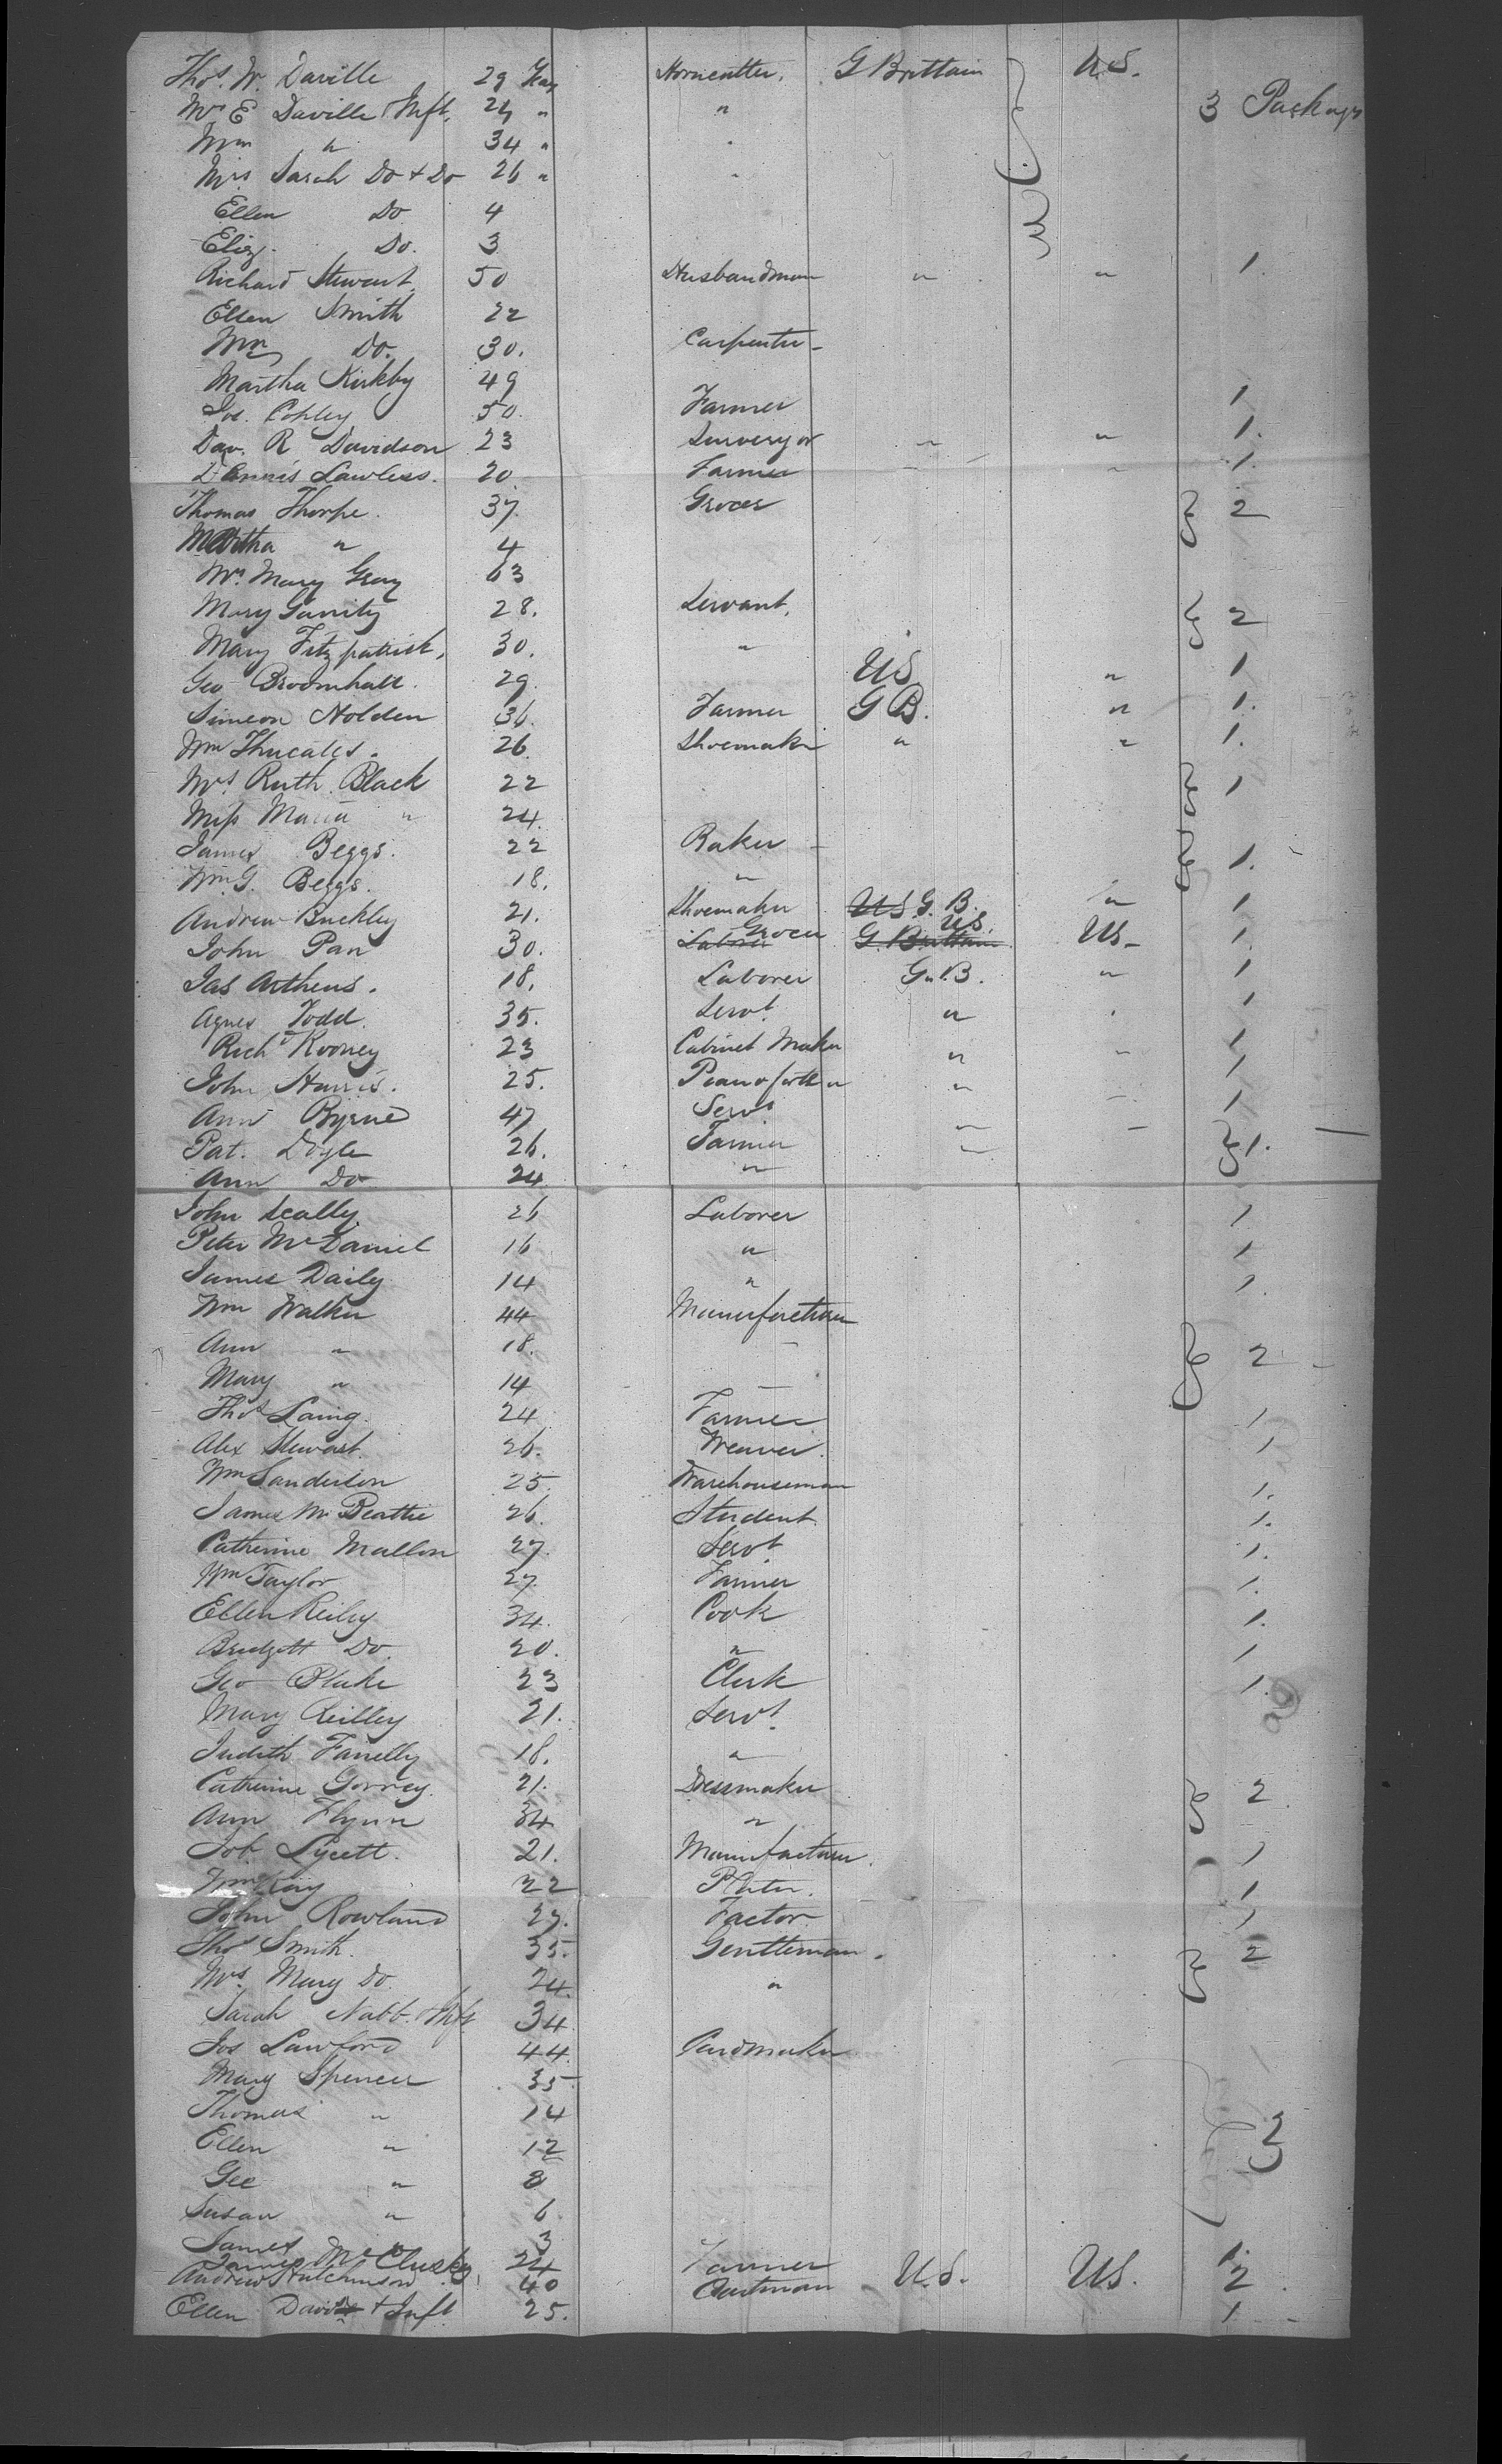 Thos. W. Daville 29 Years Horncutter. G Brittain U.S.
Mrs E Daville & Inft. 24 " " 3 Packages
Wm " 34 " "
Mrs Sarah Do + Do 26 " "
Ellen Do 4
Eliz. Do. 3
Richard Stewart. 50 Husbandman " " 1.
Ellen Smith 22
Wm Do. 30. Carpenter -
Martha Kirkby 49 1
Jos. Copley 50. Farmer 1.
Dav. R. Davidson 23 Surveyor " " 1.
Dennis Lawless. 20. Farmer
Thomas Thorpe. 37. Grocer 2
Martha " 4
Mrs. Mary Gray 63
Mary Garrity 28. Servant. 2
Mary Fitzpatrick. 30. "
Geo Broomhall. 29. US " 1
Simeon Holden 36. Farmer G B. " 1.
Wm 26. Shoemaker " " 1.
Mrs Ruth Black 22 1
Miss Maria " 24.
James Beggs. 22 Baker - 1.
Wm G. Beggs. 18. "
Andrew Buckley 21. Shoemaker US G. B. " 1
John Parr 30. Laborer Grocer G. Brittain US. US- 1.
Jas Arthens. 18. Laborer G. B. " 1
Agnes Todd. 35. Servt. " 1
Richd Rooney 23 Cabinet Maker " " 1
John Harris. 25. Pianoforte " " 1
Ann Byrne 47 Servt " - 1
Pat. Doyle 26. Farmer " 1.
Ann Do 24 "
John Scally. 26 Laborer 1
Peter McDaniel 16 " 1
James Daily 14 " 1.
Wm Walker 44 Manufacturer
Ann " 18. - 2
Mary " 14 -
Thos Laing. 24 Farmer 1
Alex Stewart. 26. Weaver. 1
Wm Sanderson 25. Warehouseman 1.
James M. Beattie 26. Student. 1.
Catherine Mallon 27. Servt. 1.
Wm Taylor 27. Farmer 1.
Ellen Reiley 34. Cook 1.
Bridgett Do. 20. " 1
Geo Blake 23 Clerk 1.
Mary Reilley 21. Servt.
Judith Farrelly 18. "
Catherine Gorrey. 21. Dressmaker 2.
Ann Flynn 34 "
Job Lycett. 21. Manufacturer. 1
Wm 22 Plater. 1
John Rowland 27. Factor. 1
Thos Smith. 35. Gentleman. 2
Mrs. Mary Do. 24. "
Sarah Nabb. & Inft. 34
Jos Lawford 44. Cardmaker
Mary Spencer 35.
Thomas " 14
Ellen " 12 2
Gee " 8
Susan " 6
James " 3
James McClusky 24 Farmer 1.
Andrew Hutchinson 40 Cartman U.S. US. 2
Ellen + Inft 25. 1 -